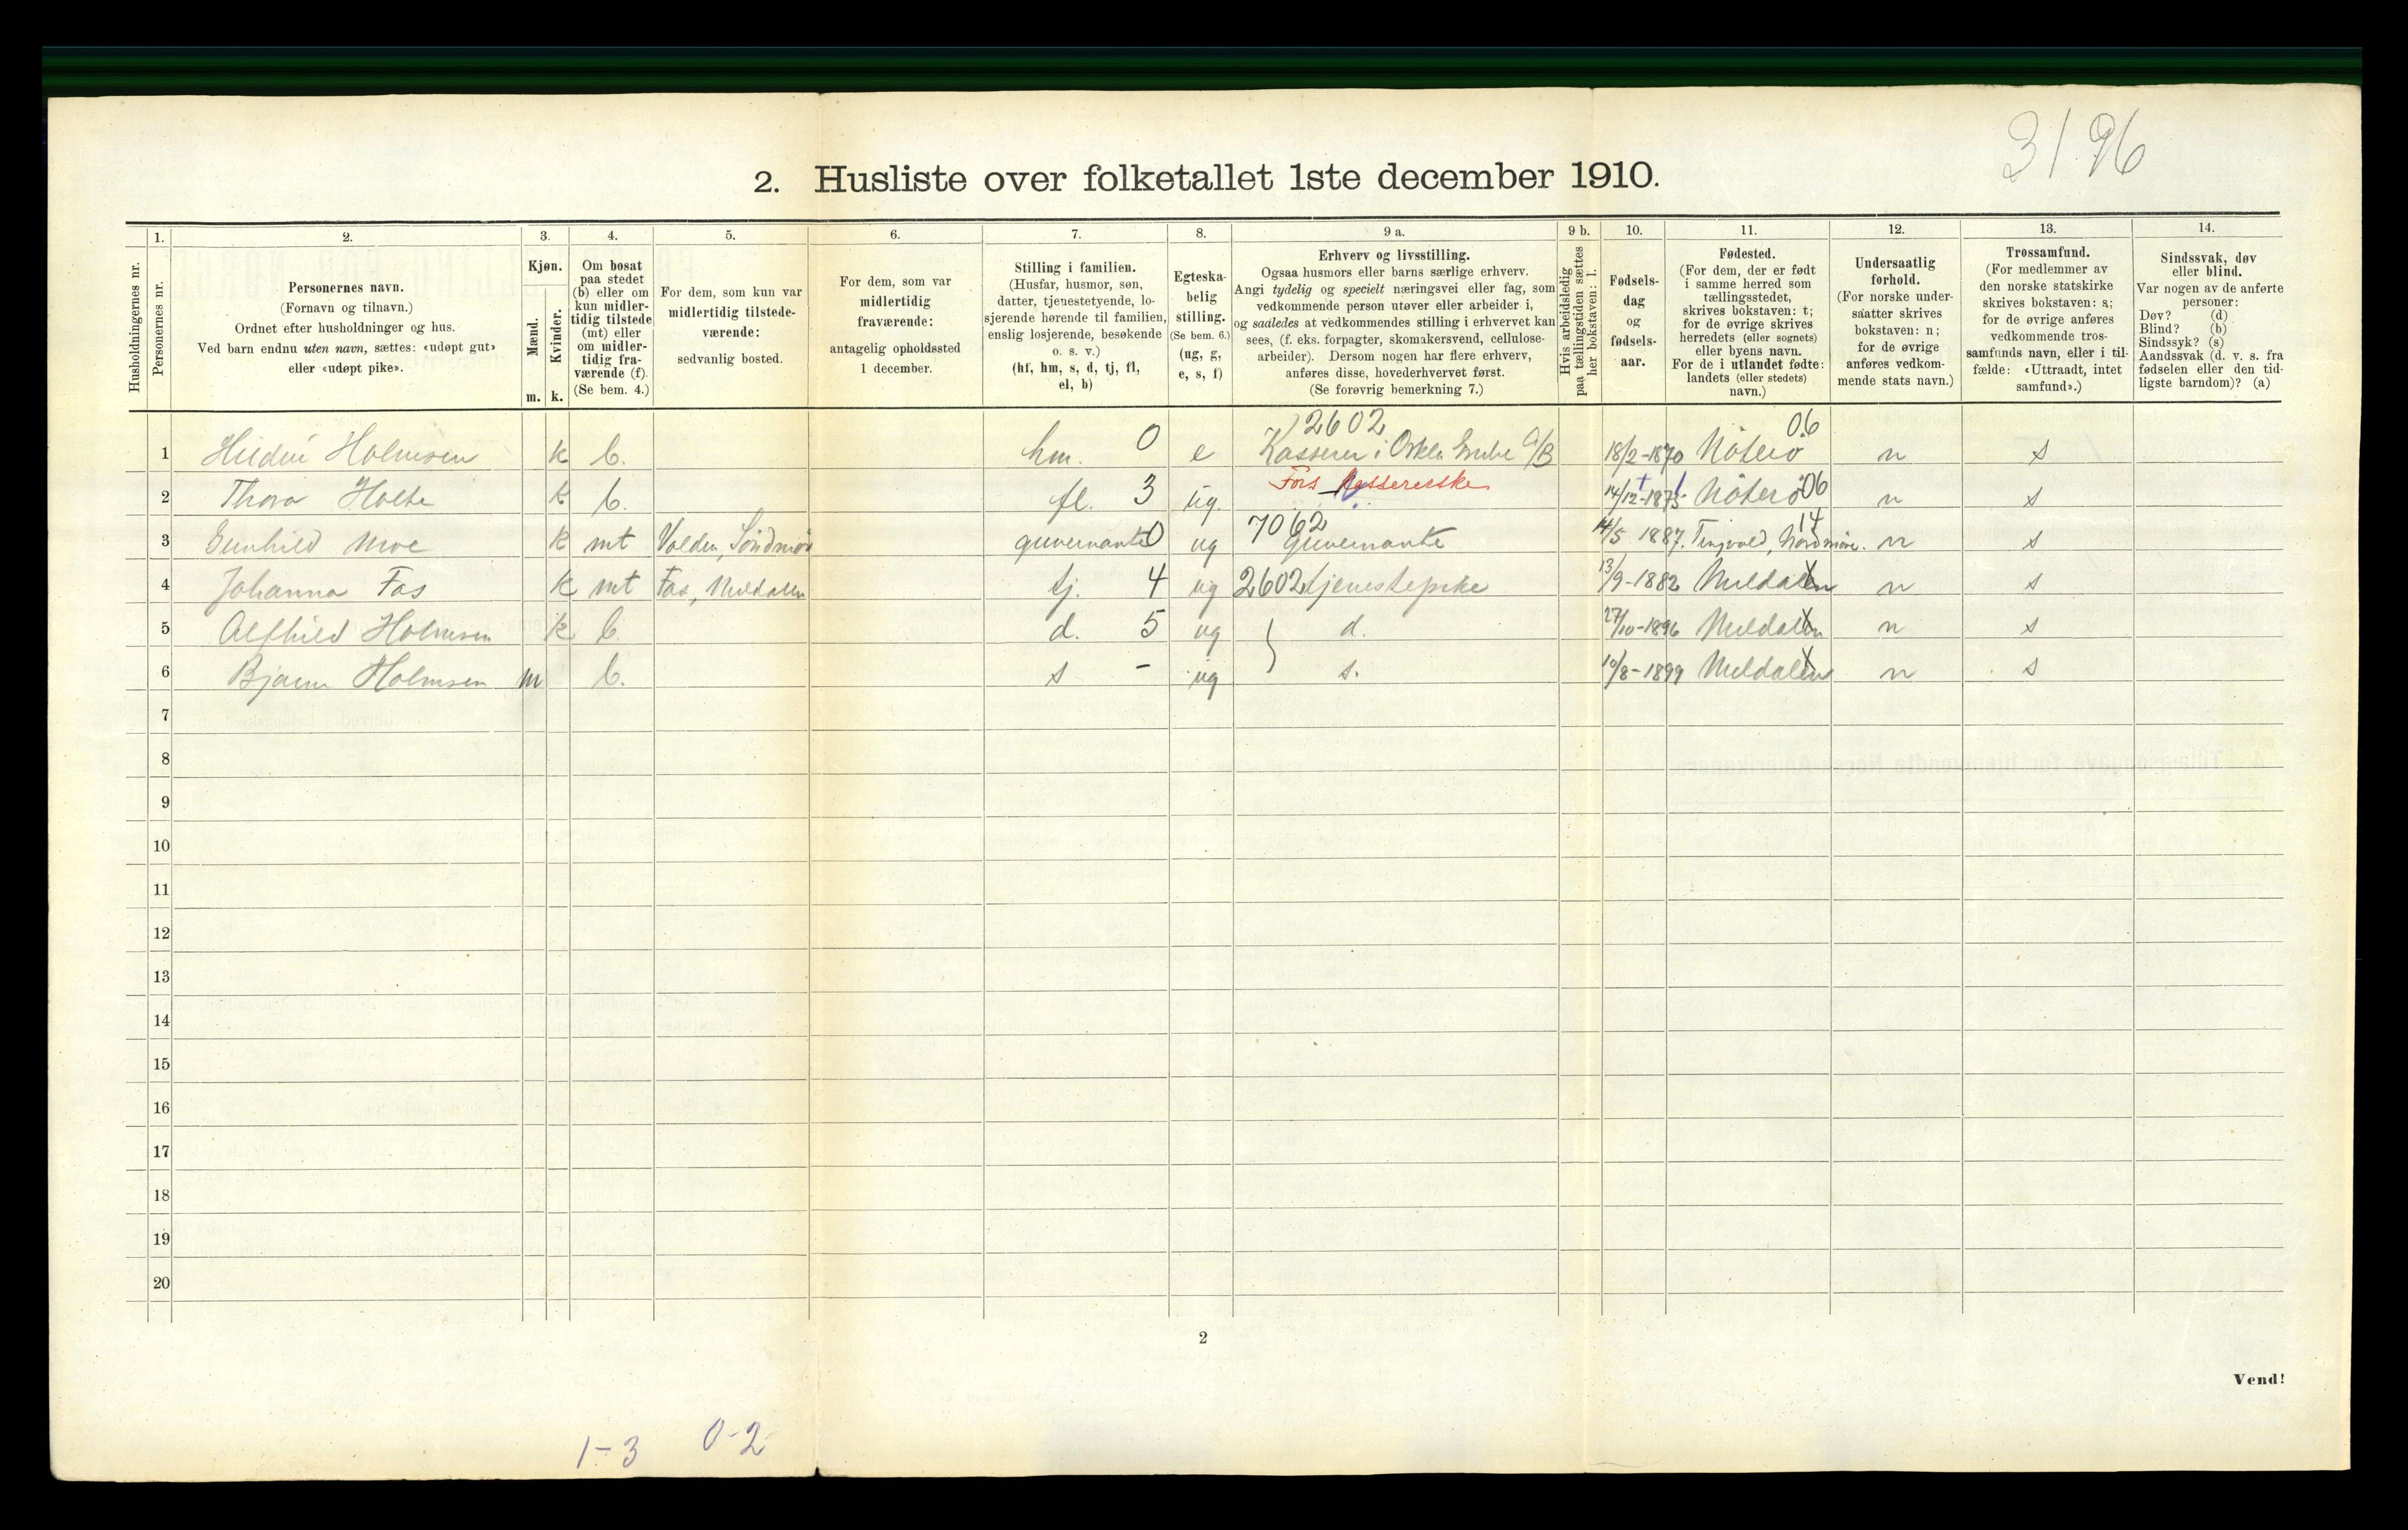 31.96
2. Husliste over folketallet 1ste december 1910.
Husholdningernes nr.
1. Personernes nr.
2. Personernes navn. (Fornavn og tilnavn.) Ordnet efter husholdninger og hus. Ved barn endnu uten navn, sættes: «udøpt gut» eller «udøpt pike».
3. Kjøn. Mænd. m. Kvinder. k.
4. Om bosat paa stedet (b) eller om kun midlertidig tilstede (mt) eller om midlertidig fraværende (f). (Se bem. 4.)
5. For dem, som kun var midlertidig tilstedeværende: sedvanlig bosted.
6. For dem, som var midlertidig fraværende: antagelig opholdssted 1 december.
7. Stilling i familien. (Husfar, husmor, søn, datter, tjenestetyende, losjerende hørende til familien, enslig losjerende, besøkende o. s. v.) (hf, hm, s, d, tj, fl, el, b)
8. Egteskabelig stilling. (Se bem. 6.) (ug, g, e, s, f)
9 a. Erhverv og livsstilling. Ogsaa husmors eller barns særlige erhverv. Angi tydelig og specielt næringsvei eller fag, som vedkommende person utøver eller arbeider i, og saaledes at vedkommendes stilling i erhvervet kan sees, (f. eks. forpagter, skomakersvend, cellulosearbeider). Dersom nogen har flere erhverv, anføres disse, hovederhvervet først. (Se forøvrig bemerkning 7.)
9 b. Hvis arbeidsledig paa tællingstiden sættes her bokstaven: l.
10. Fødselsdag og fødselsaar.
11. Fødested. (For dem, der er født i samme herred som tællingsstedet, skrives bokstaven: t; for de øvrige skrives herredets (eller sognets) eller byens navn. For de i utlandet fødte: landets (eller stedets) navn.)
12. Undersaatlig forhold. (For norske undersaatter skrives bokstaven: n; for de øvrige anføres vedkommende stats navn.)
13. Trossamfund. (For medlemmer av den norske statskirke skrives bokstaven: s; for de øvrige anføres vedkommende trossamfunds navn, eller i tilfælde: «Uttraadt, intet samfund».)
14. Sindssvak, døv eller blind. Var nogen av de anførte personer: Døv? (d) Blind? (b) Sindssyk? (s) Aandssvak (d. v. s. fra fødselen eller den tidligste barndom)? (a)
2602 06
1 Holmsen k b. hm. 0 e Kasserer i Orkla Grube A/B 18/2-1870 Nöterö n s
Fors Kassererske
2 Thora Holthe k b. fl. 3 ug. 14/12-1875 Nöterö 06 n s
7062 14
3 Gunhild Moe k mt Volden, Söndmör guvernante 0 ug Guvernante 14/5 1887. Tingvold, Nordmöre. n s
4 Johanna Fos k mt Fos, Meldalen tj. 4 ug 2602 tjenestepike 13/9-1882 Meldalen n s
5 Alfhild Holmsen k b d. 5 ug } d. 27/10-1896 Meldalen n s
6 Bjarne Holmsen m b. s - ug s. 10/8-1899 Meldalen n s
7
8
9
10
11
12
13
14
15
16
17
18
19
20
2
Vend!
1-3 0-2